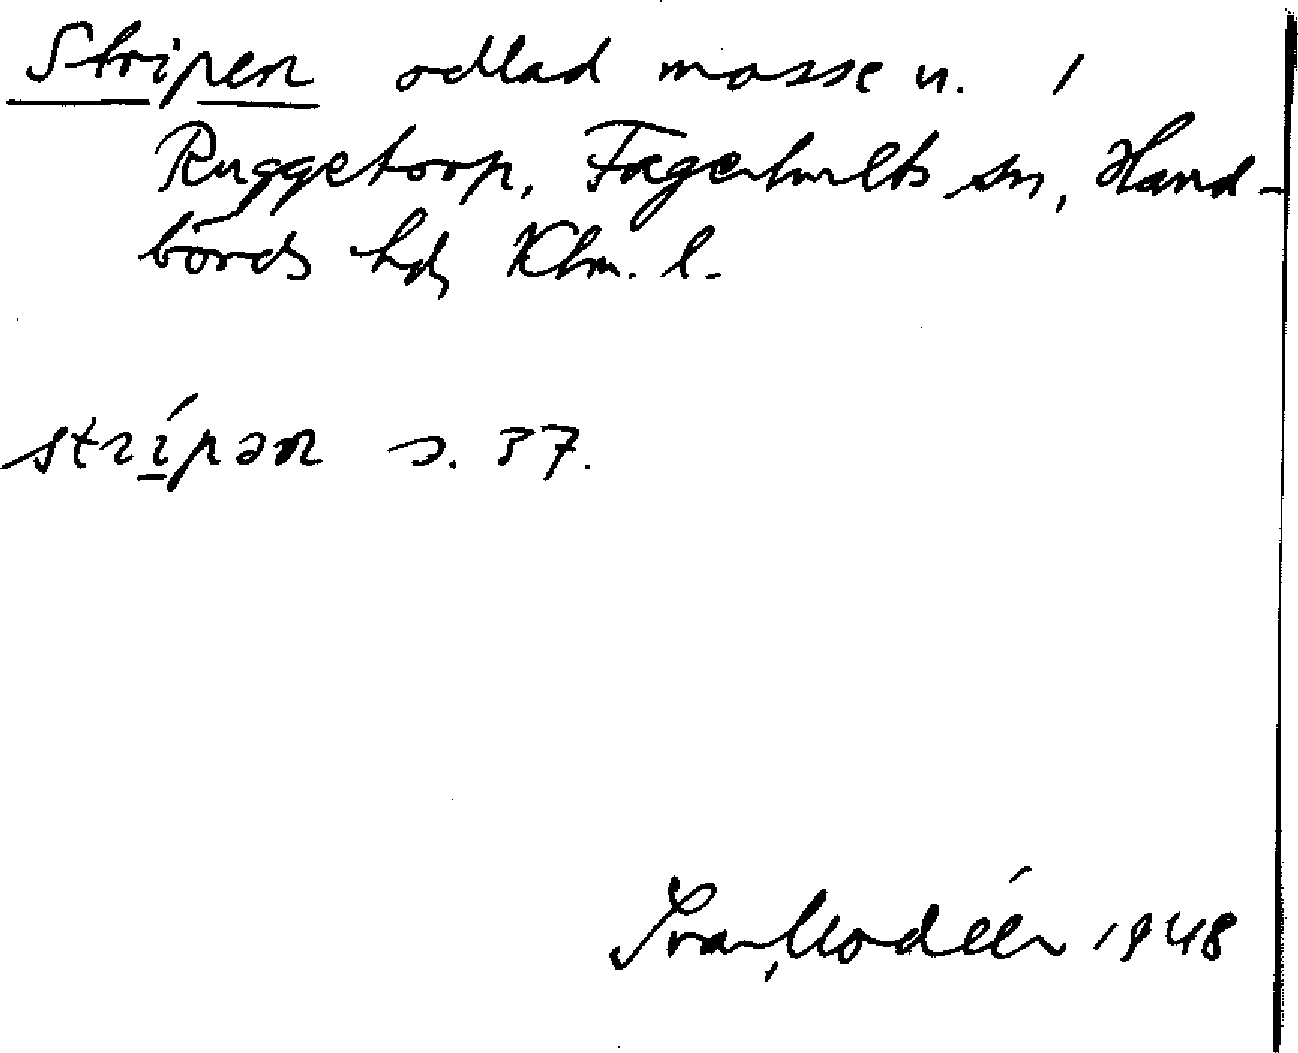 Stripen odlad mosse u. /
Ruggetorp, Fagerhults sn, Hand-
börds hd, Klm. l.
strípən s. 37.
Ivar Modéer 1948